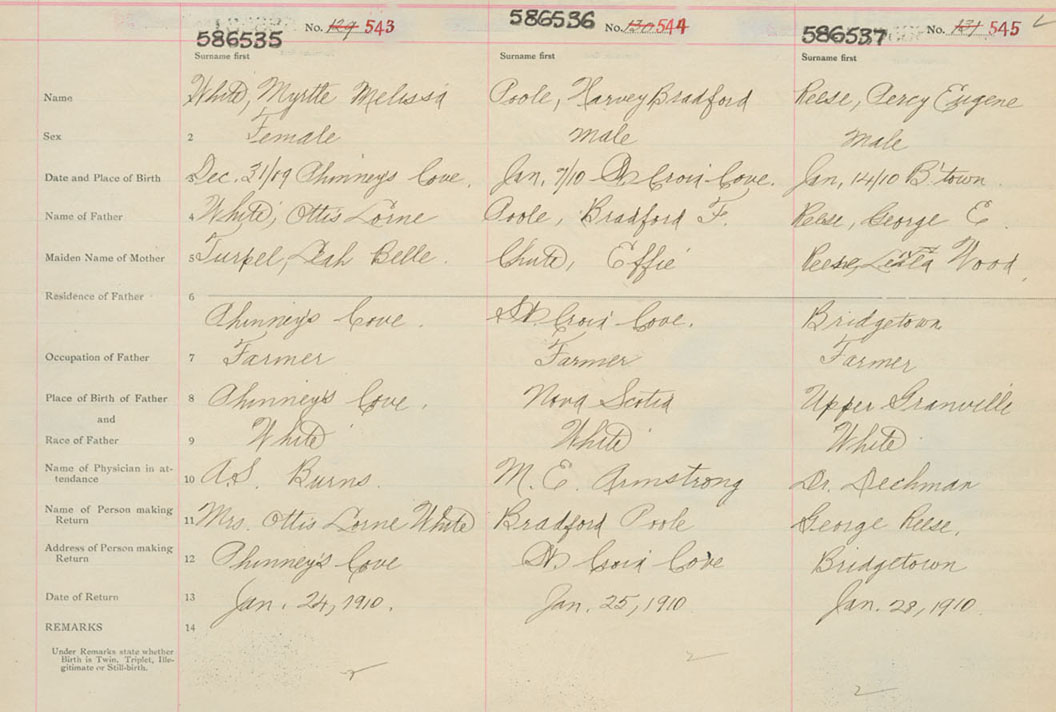 586535 No. 129 543
586536 No. 130 544
586537 No. 131 545
Surname first Surname first Surname first
Name White, Myrtle Melissa Poole, Harvey Bradford Reese, Percy Eugene
Sex 2 Female Male Male
Date and Place of Birth 3 Dec. 31/09 Phinney's Cove. Jan, 7/10 St Croix Cove. Jan, 14/10 B'town.
Name of Father 4 White, Ottis Lorne Poole, Bradford F. Reese, George E
Maiden Name of Mother 5 Turpel, Leah Belle. Chute, Effie Reese, Wood
Residence of Father 6
Phinney's Cove. St Croix Cove. Bridgetown
Occupation of Father 7 Farmer Farmer Farmer
Place of Birth of Father 8 Phinney's Cove. Nova Scotia Upper Granville
and
Race of Father 9 White White White
Name of Physician in at-
tendance 10 A.S. Burns. M. E. Armstrong Dr. Dechman
Name of Person making
Return 11 Mrs. Ottis Lorne White Bradford Poole George Reese.
Address of Person making
Return 12 Phinney's Cove St Croix Cove Bridgetown
Date of Return 13 Jan. 24, 1910. Jan. 25, 1910 Jan. 28, 1910.
REMARKS 14
Under Remarks state whether
Birth is Twin, Triplet, Ille-
gitimate or Still-birth.